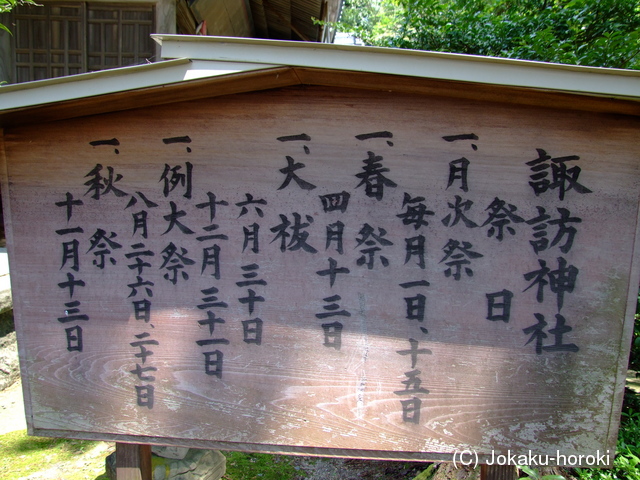 諏訪神社
祭日
一、月次祭
毎月一日、十五日
一、春祭
四月十三日
一、大祓
六月三十日
十二月三十一日
一、例大祭
八月二十六日、二十七日
一、秋祭
十一月十三日
(C) Jokaku-horoki